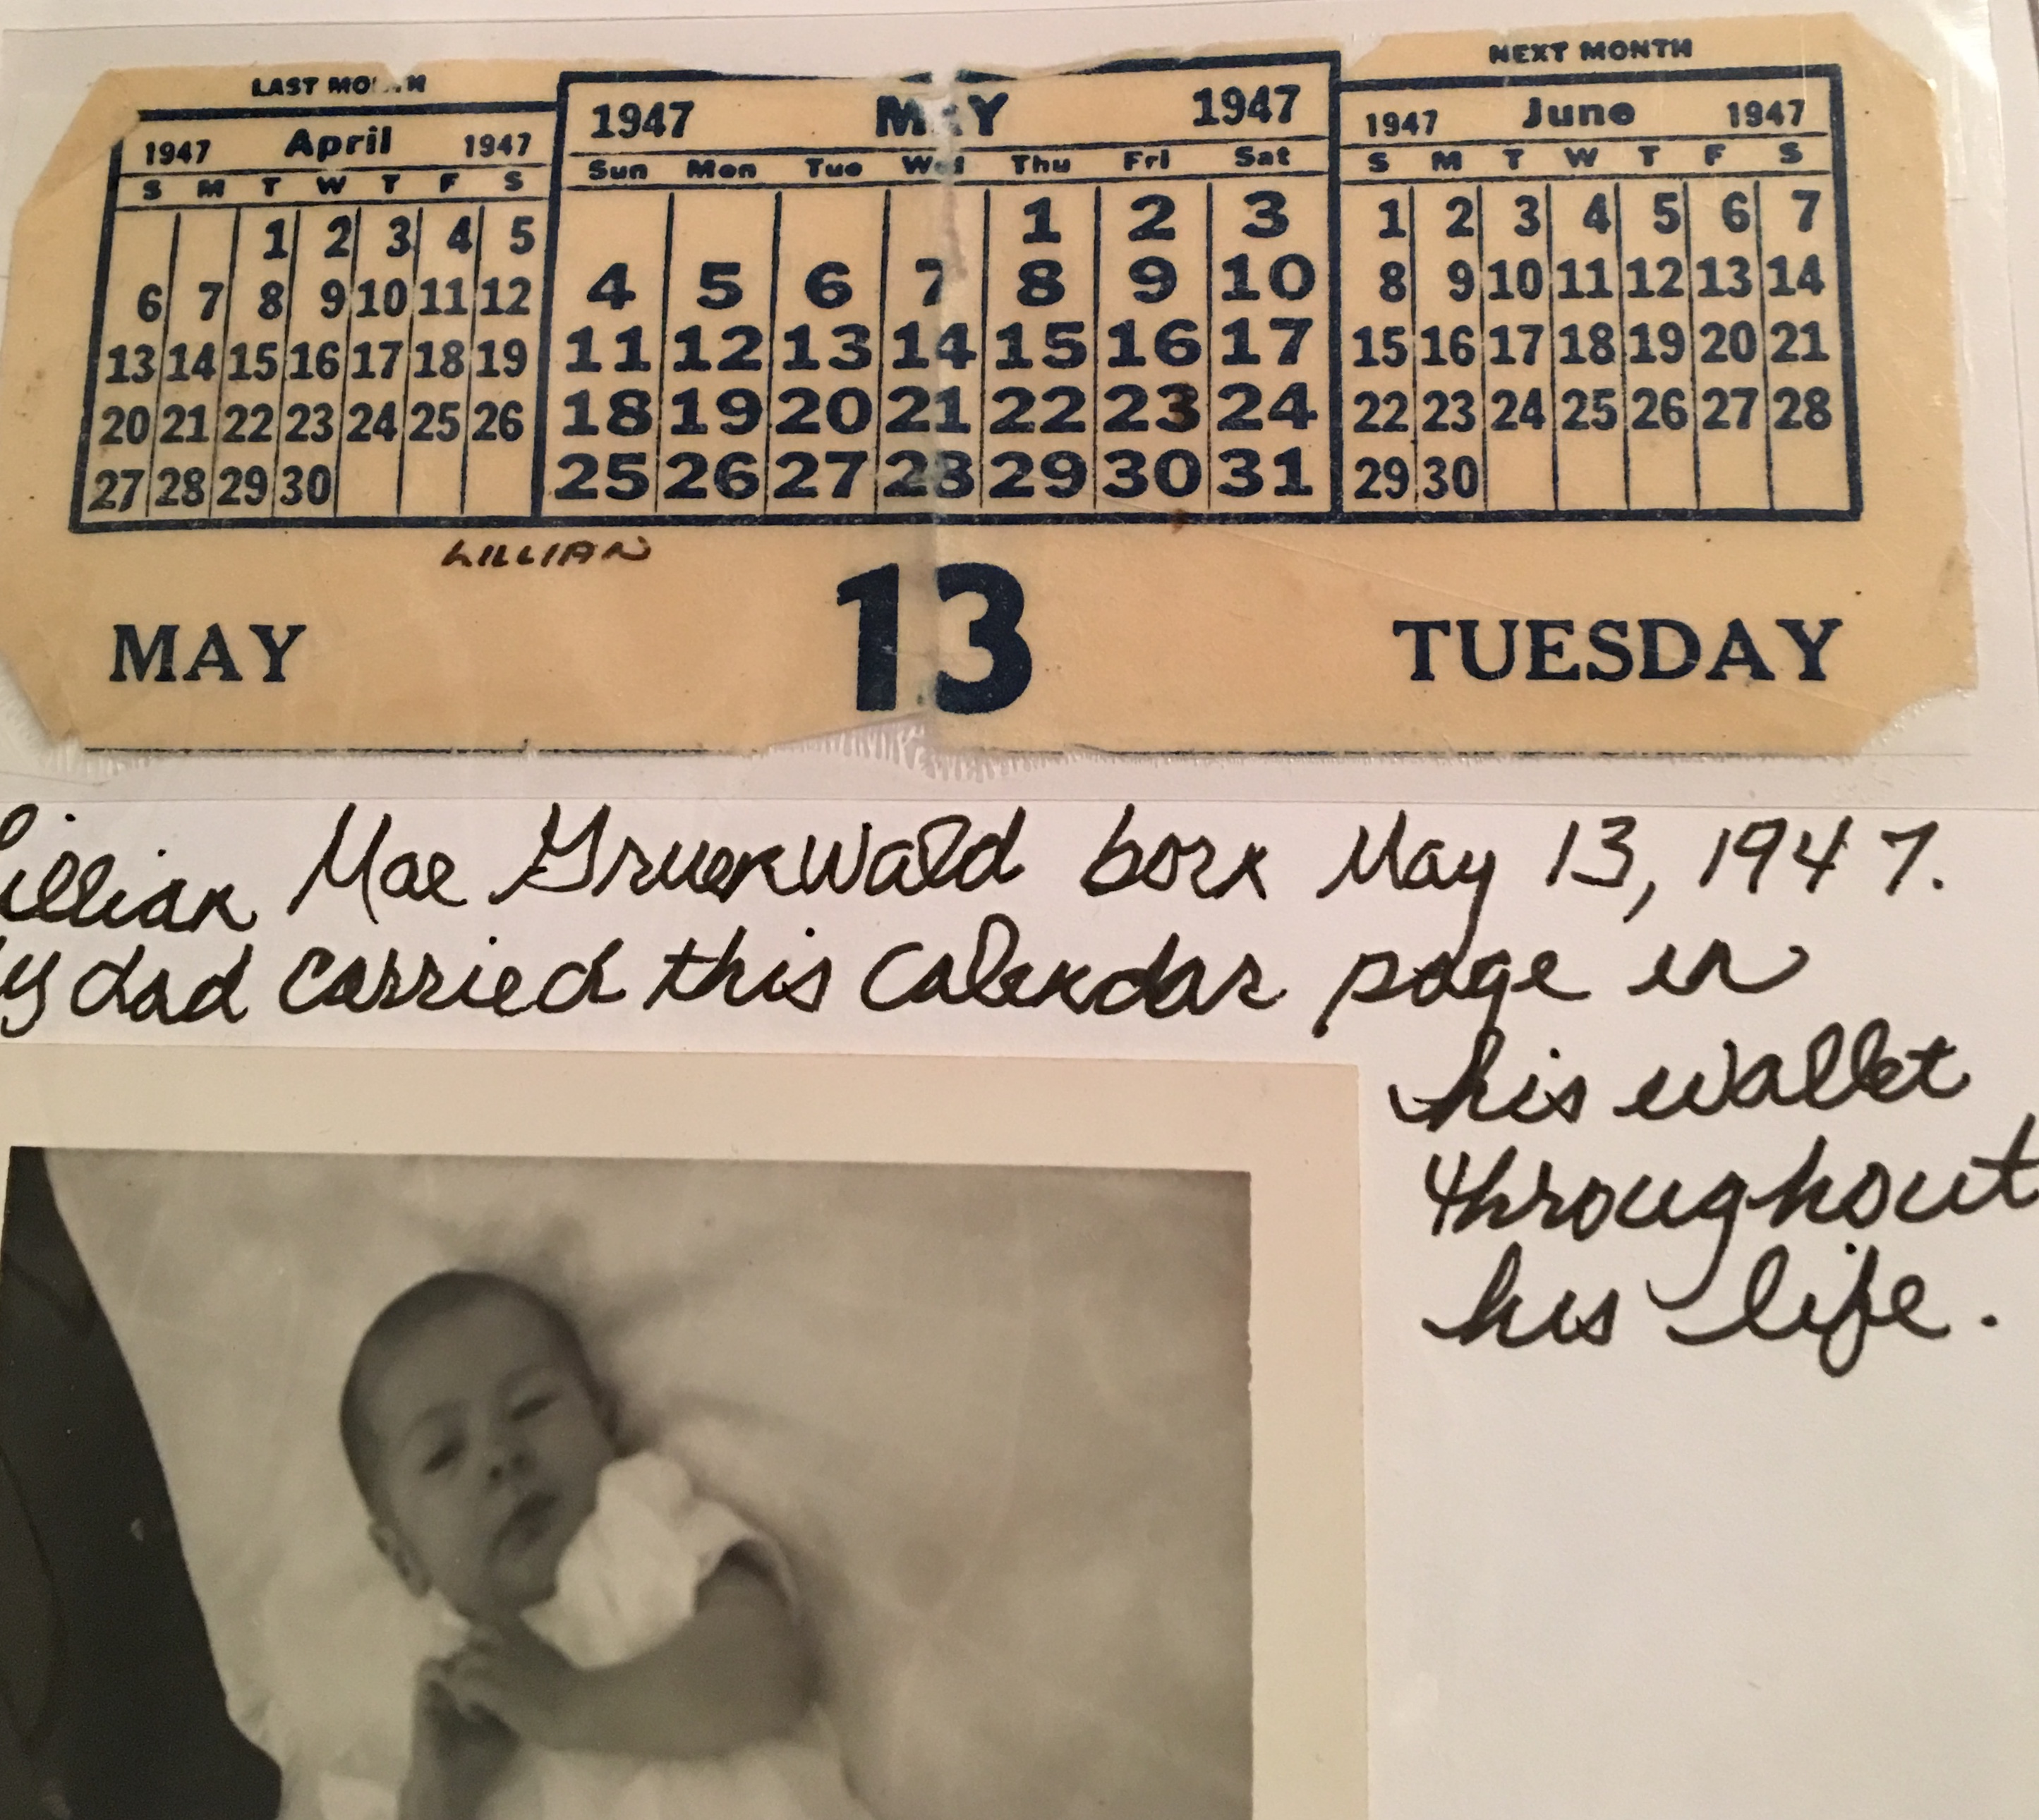 LAST MONTH
1947 April 1947
S M T W T F S
1 2 3 4 5
6 7 8 9 10 11 12
13 14 15 16 17 18 19
20 21 22 23 24 25 26
27 28 29 30
1947 MAY 1947
Sun Mon Tue Wed Thu Fri Sat
1 2 3
4 5 6 7 8 9 10
11 12 13 14 15 16 17
18 19 20 21 22 23 24
25 26 27 28 29 30 31
NEXT MONTH
1947 June 1947
S M T W T F S
1 2 3 4 5 6 7
8 9 10 11 12 13 14
15 16 17 18 19 20 21
22 23 24 25 26 27 28
29 30
LILLIAN
MAY 13 TUESDAY
Lillian Mae Gruenwald born May 13, 1947.
My dad carried this calendar page in
his wallet
throughout
his life.